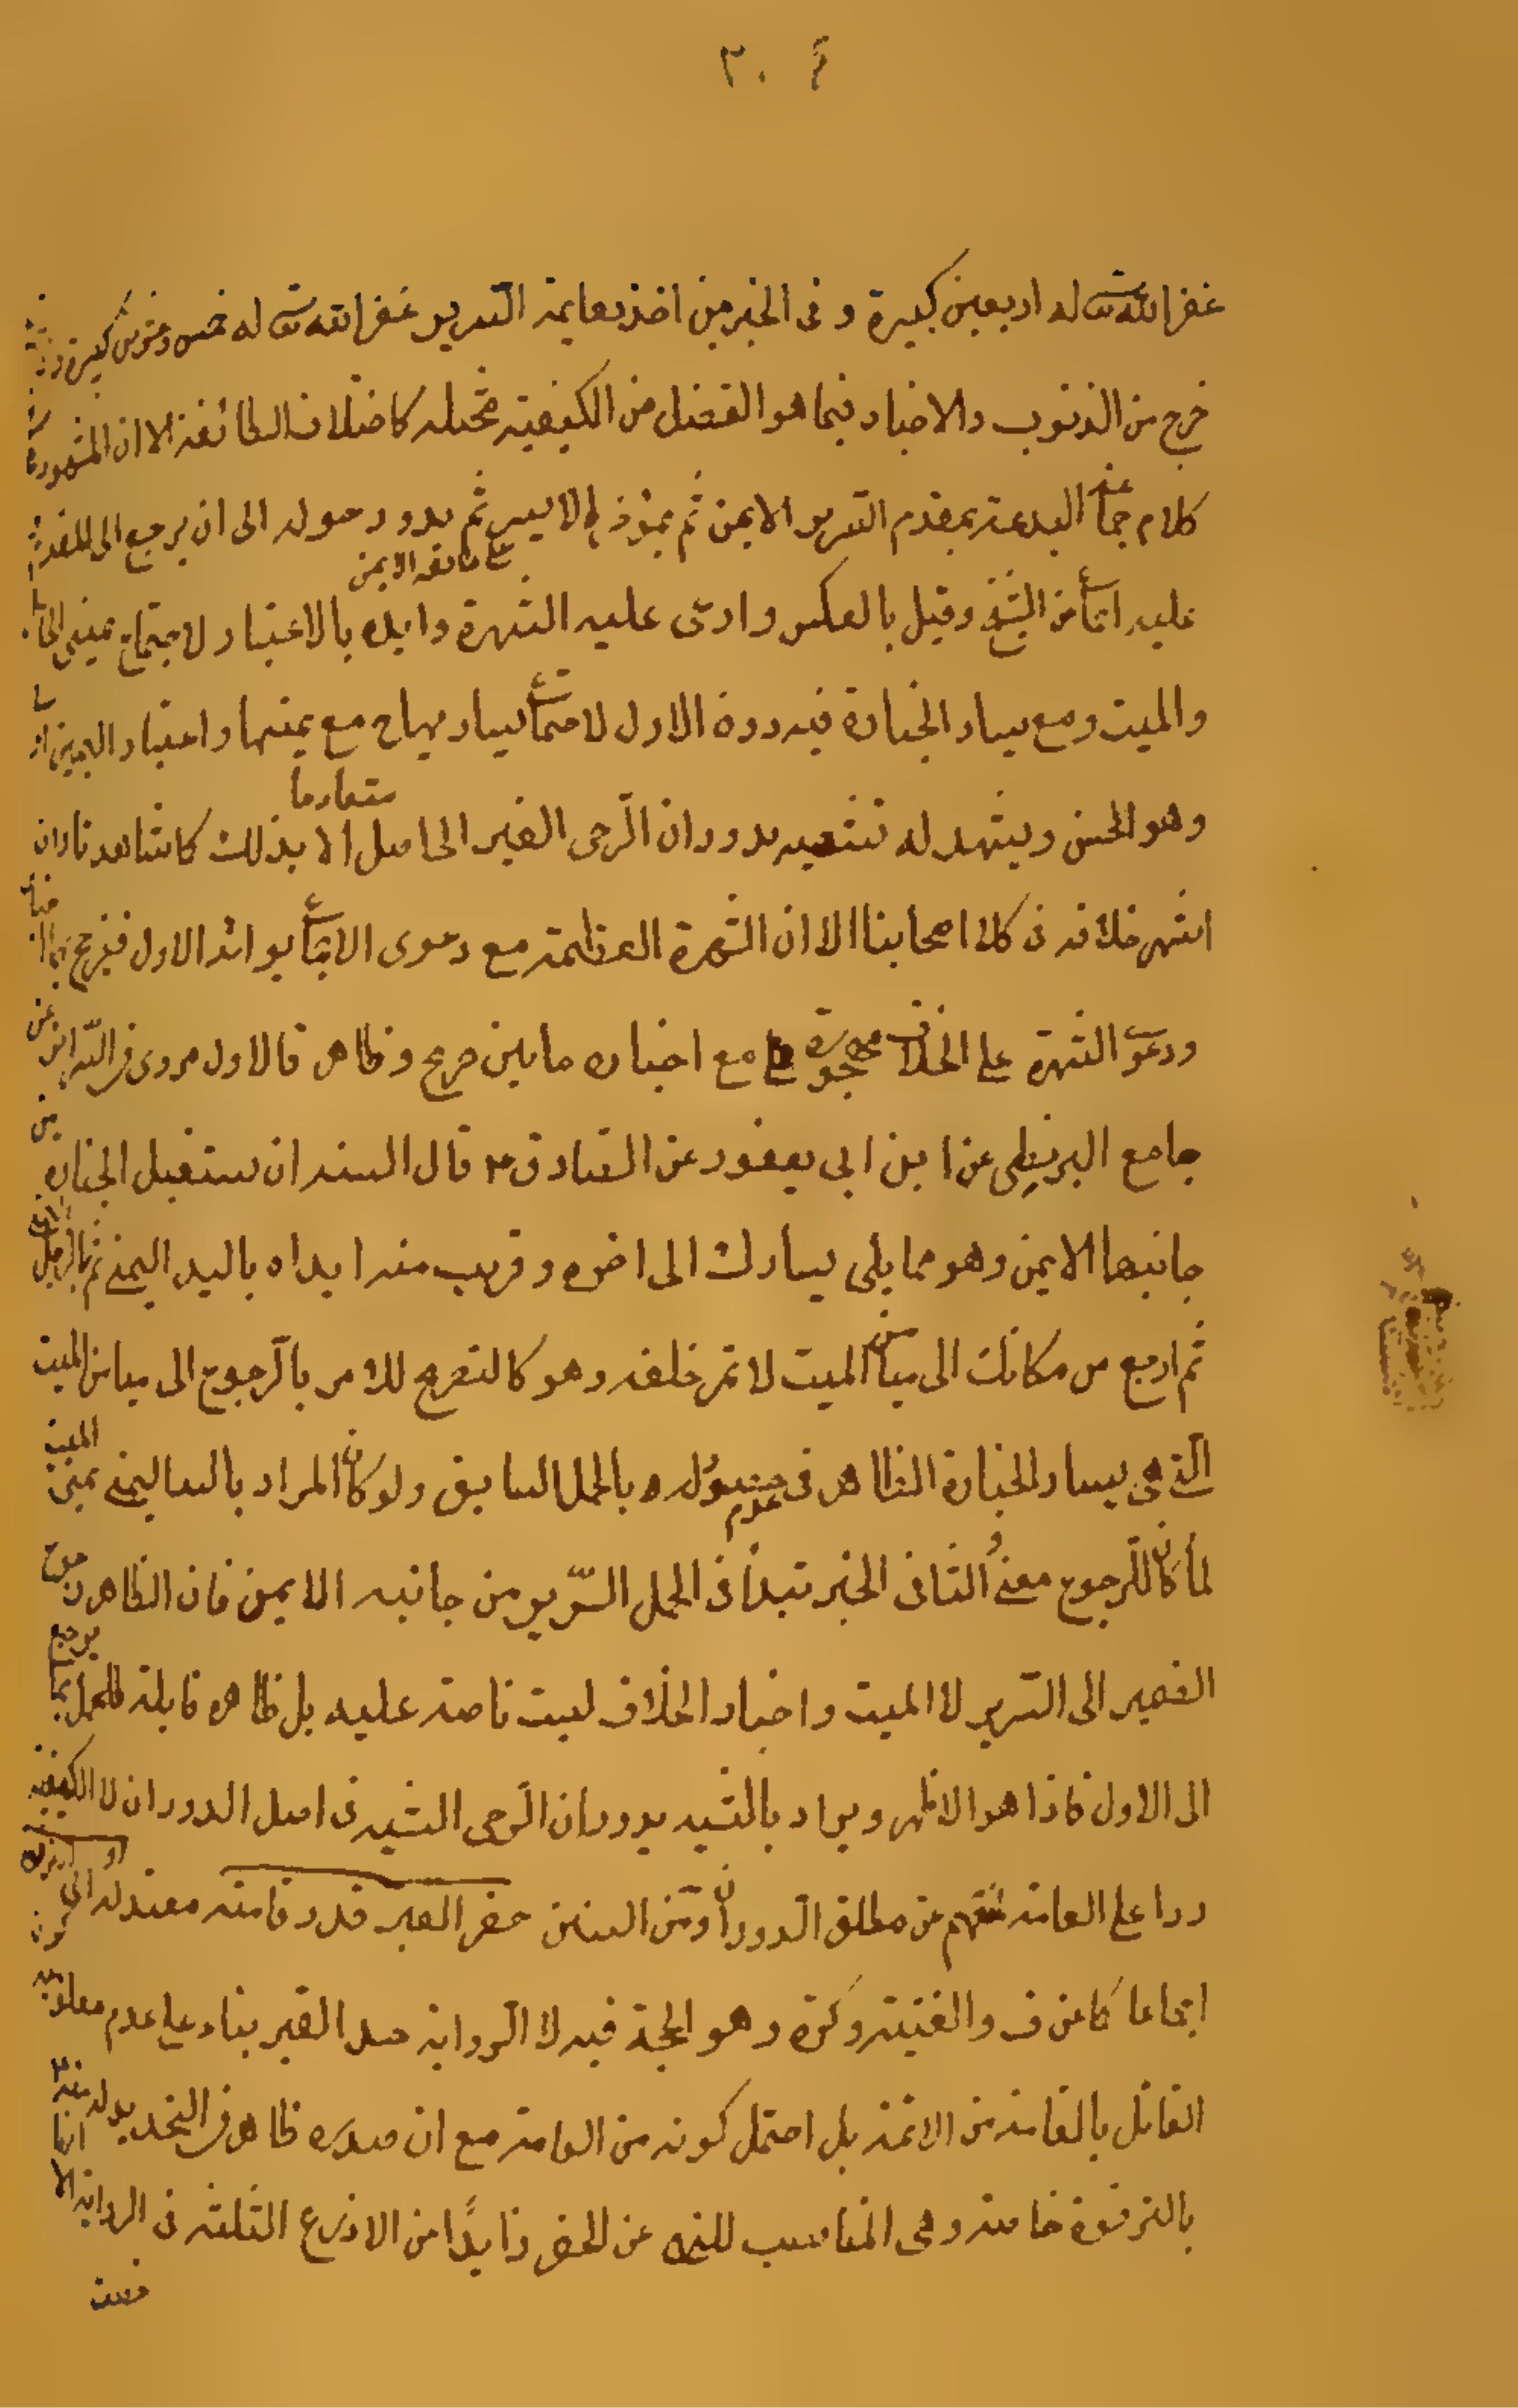 ٣٠ ٤
غفر الله له اربعين كبيرة و فى الخبر من اخذ بقائمة السرير غفر الله له خمس وعشرين كبيرة
خرج من الذنوب والاخبار فيما هو الفضل من الكيفية مختلفة كاختلاف الطائفة الا ان المشهور
كلام جماعة البدئة بمقدم السرير الايمن ثم يدور حوله الى ان يرجع الى المقدم
على عاتقه الايمن
عليه من الشيخ وقيل بالعكس وادعى عليه الشهرة وايده بالاعتبار لاجتماع يمينى
والميت ومع يسار الجنازة فيه دون الاول لاجتماع يسارهما مع يمينها واعتبار اليمين
متعارفا
وهو الحسن ويشهد له تشبيهه بدوران الرحى الغير الحاصل الا بذلك كما شاهدنا وان
اشتهر خلافه فى كلام اصحابنا الا ان الشهرة العظيمة مع دعوى الاول
ودعوى الشهرة على الخلاف مع اخباره ما بين صريح وظاهر فالاول مروى فى السرائر عن
جامع البزنطى عن ابن ابى يعفور عن الصادق ع قال السنة ان تستقبل الجنازة من
جانبها الايمن وهو مما يلى يسارك الى اخره وقريب منه ابداه باليد اليمنى ثم بالرجل
ثم ارجع من مكانك الى ميامن الميت لا تمر خلفه وهو كالصريح للامر بالرجوع الى ميامن الميت
التى هى يسار الجنازة الظاهر فى عدم بالحمل السابق ولو كان المراد باليد اليمنى يمين الميت
لما كان للرجوع معنى والثانى الخبر تبدأ فى الحمل السرير من جانبه الايمن فان الظاهر رجوع
الضمير الى السرير لا الميت واخبار الخلاف ليست ناصة عليه بل ظاهرة قابلة للحمل بما يرجع
الى الاول فاذا هو الاظهر ويراد بالتشبيه بدوران الرحى التشبيه فى اصل الدوران لا الكيفية
ردا على العامة عن مطلق الدوران ومن السنن حفر القبر قدر قامة معتدلة او الى الترقوة
اجماعا كما عن ف والغنية وكرة وهو الحجة فيه لا الرواية حد القبر بناء على عدم معلومية
القائل بالقامة من الائمة بل احتمل كونه من العامة مع ان صدره ظاهر فى التحديد له
بالترقوة خاصة وهى المناسب للنهى عن الحفر زايدًا من الاذرع الثلثة فى الرواية الا